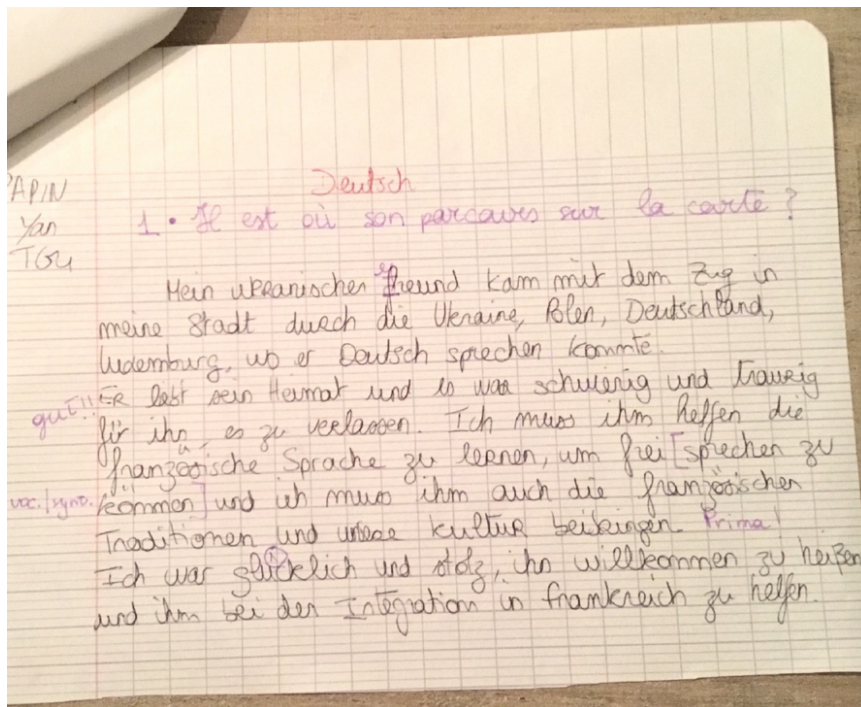 PAPIN
Yan
TG4
Deutsch
1. Il est où son parcours sur la carte ?
Mein ukranischer Freund kam mit dem Zug in
meine Stadt durch die Ukraine, Polen, Deutschland,
Luxemburg, wo er Deutsch sprechen konnte.
gut!! Er liebt sein Heimat und es war schwierig und traurig
für ihn, es zu verlassen. Ich muss ihm helfen die
französische Sprache zu lernen, um frei [sprechen zu
voc./synt. können] und ich muss ihm auch die französischen
Traditionen und unsere Kultur beibringen. Prima!
Ich war glücklich und stolz, ihn willkommen zu heißen
und ihm bei der Integration in Frankreich zu helfen.